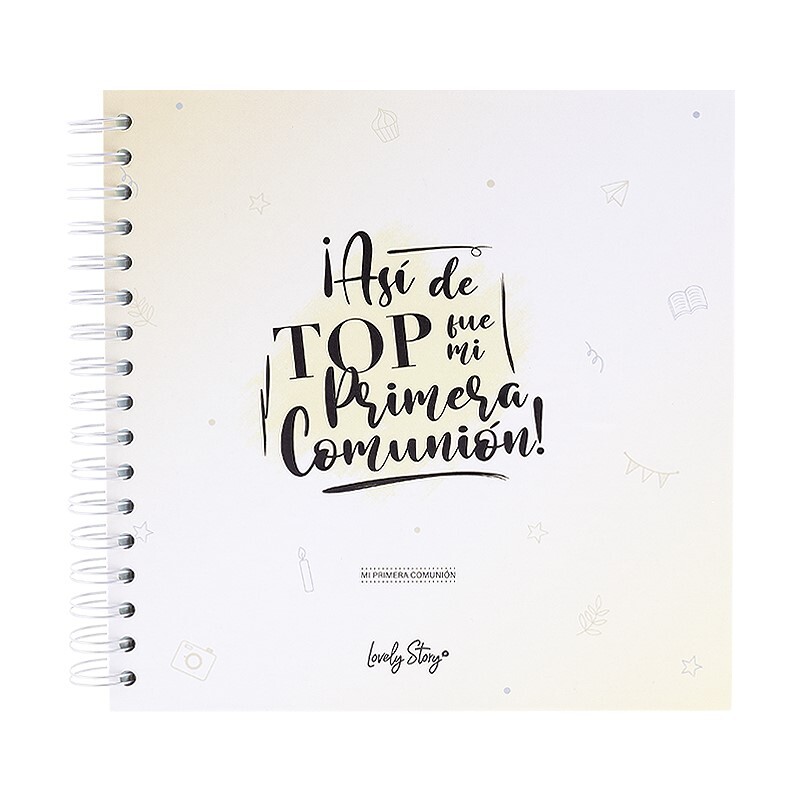 ¡Así de
TOP fue
mi
Primera
Comunión!
MI PRIMERA COMUNIÓN
Lovely Story